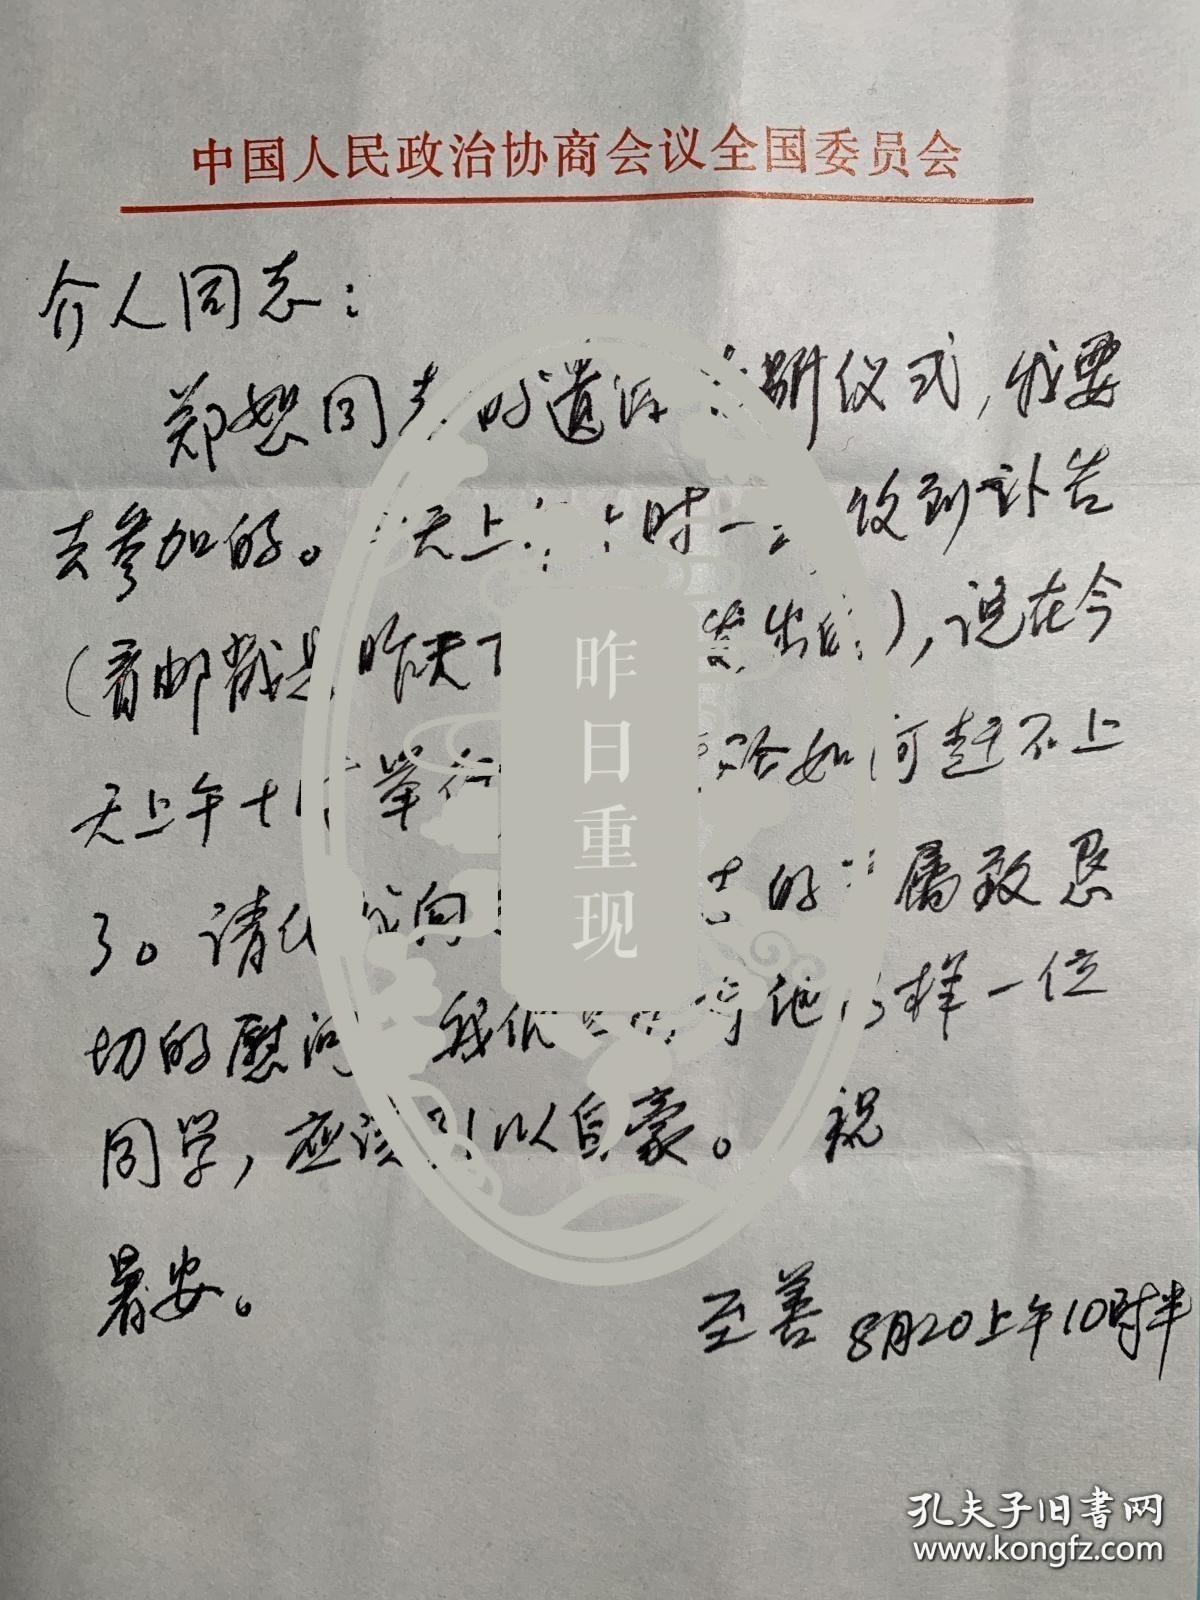 中国人民政治协商会议全国委员会
介人同志：
郑恕同志的遗 仪式，我要
去参加的。 天上 时 收到讣告
（看邮戳是昨天下 发出的），说在今
天上午十时举行 如何赶不上
了。请代我向 的 属致恳
切的慰问 我们 他 样一位
同学，应该引以自豪。 祝
暑安。
至善 8月20上午10时半
昨日重现
孔夫子旧书网
www.kongfz.com